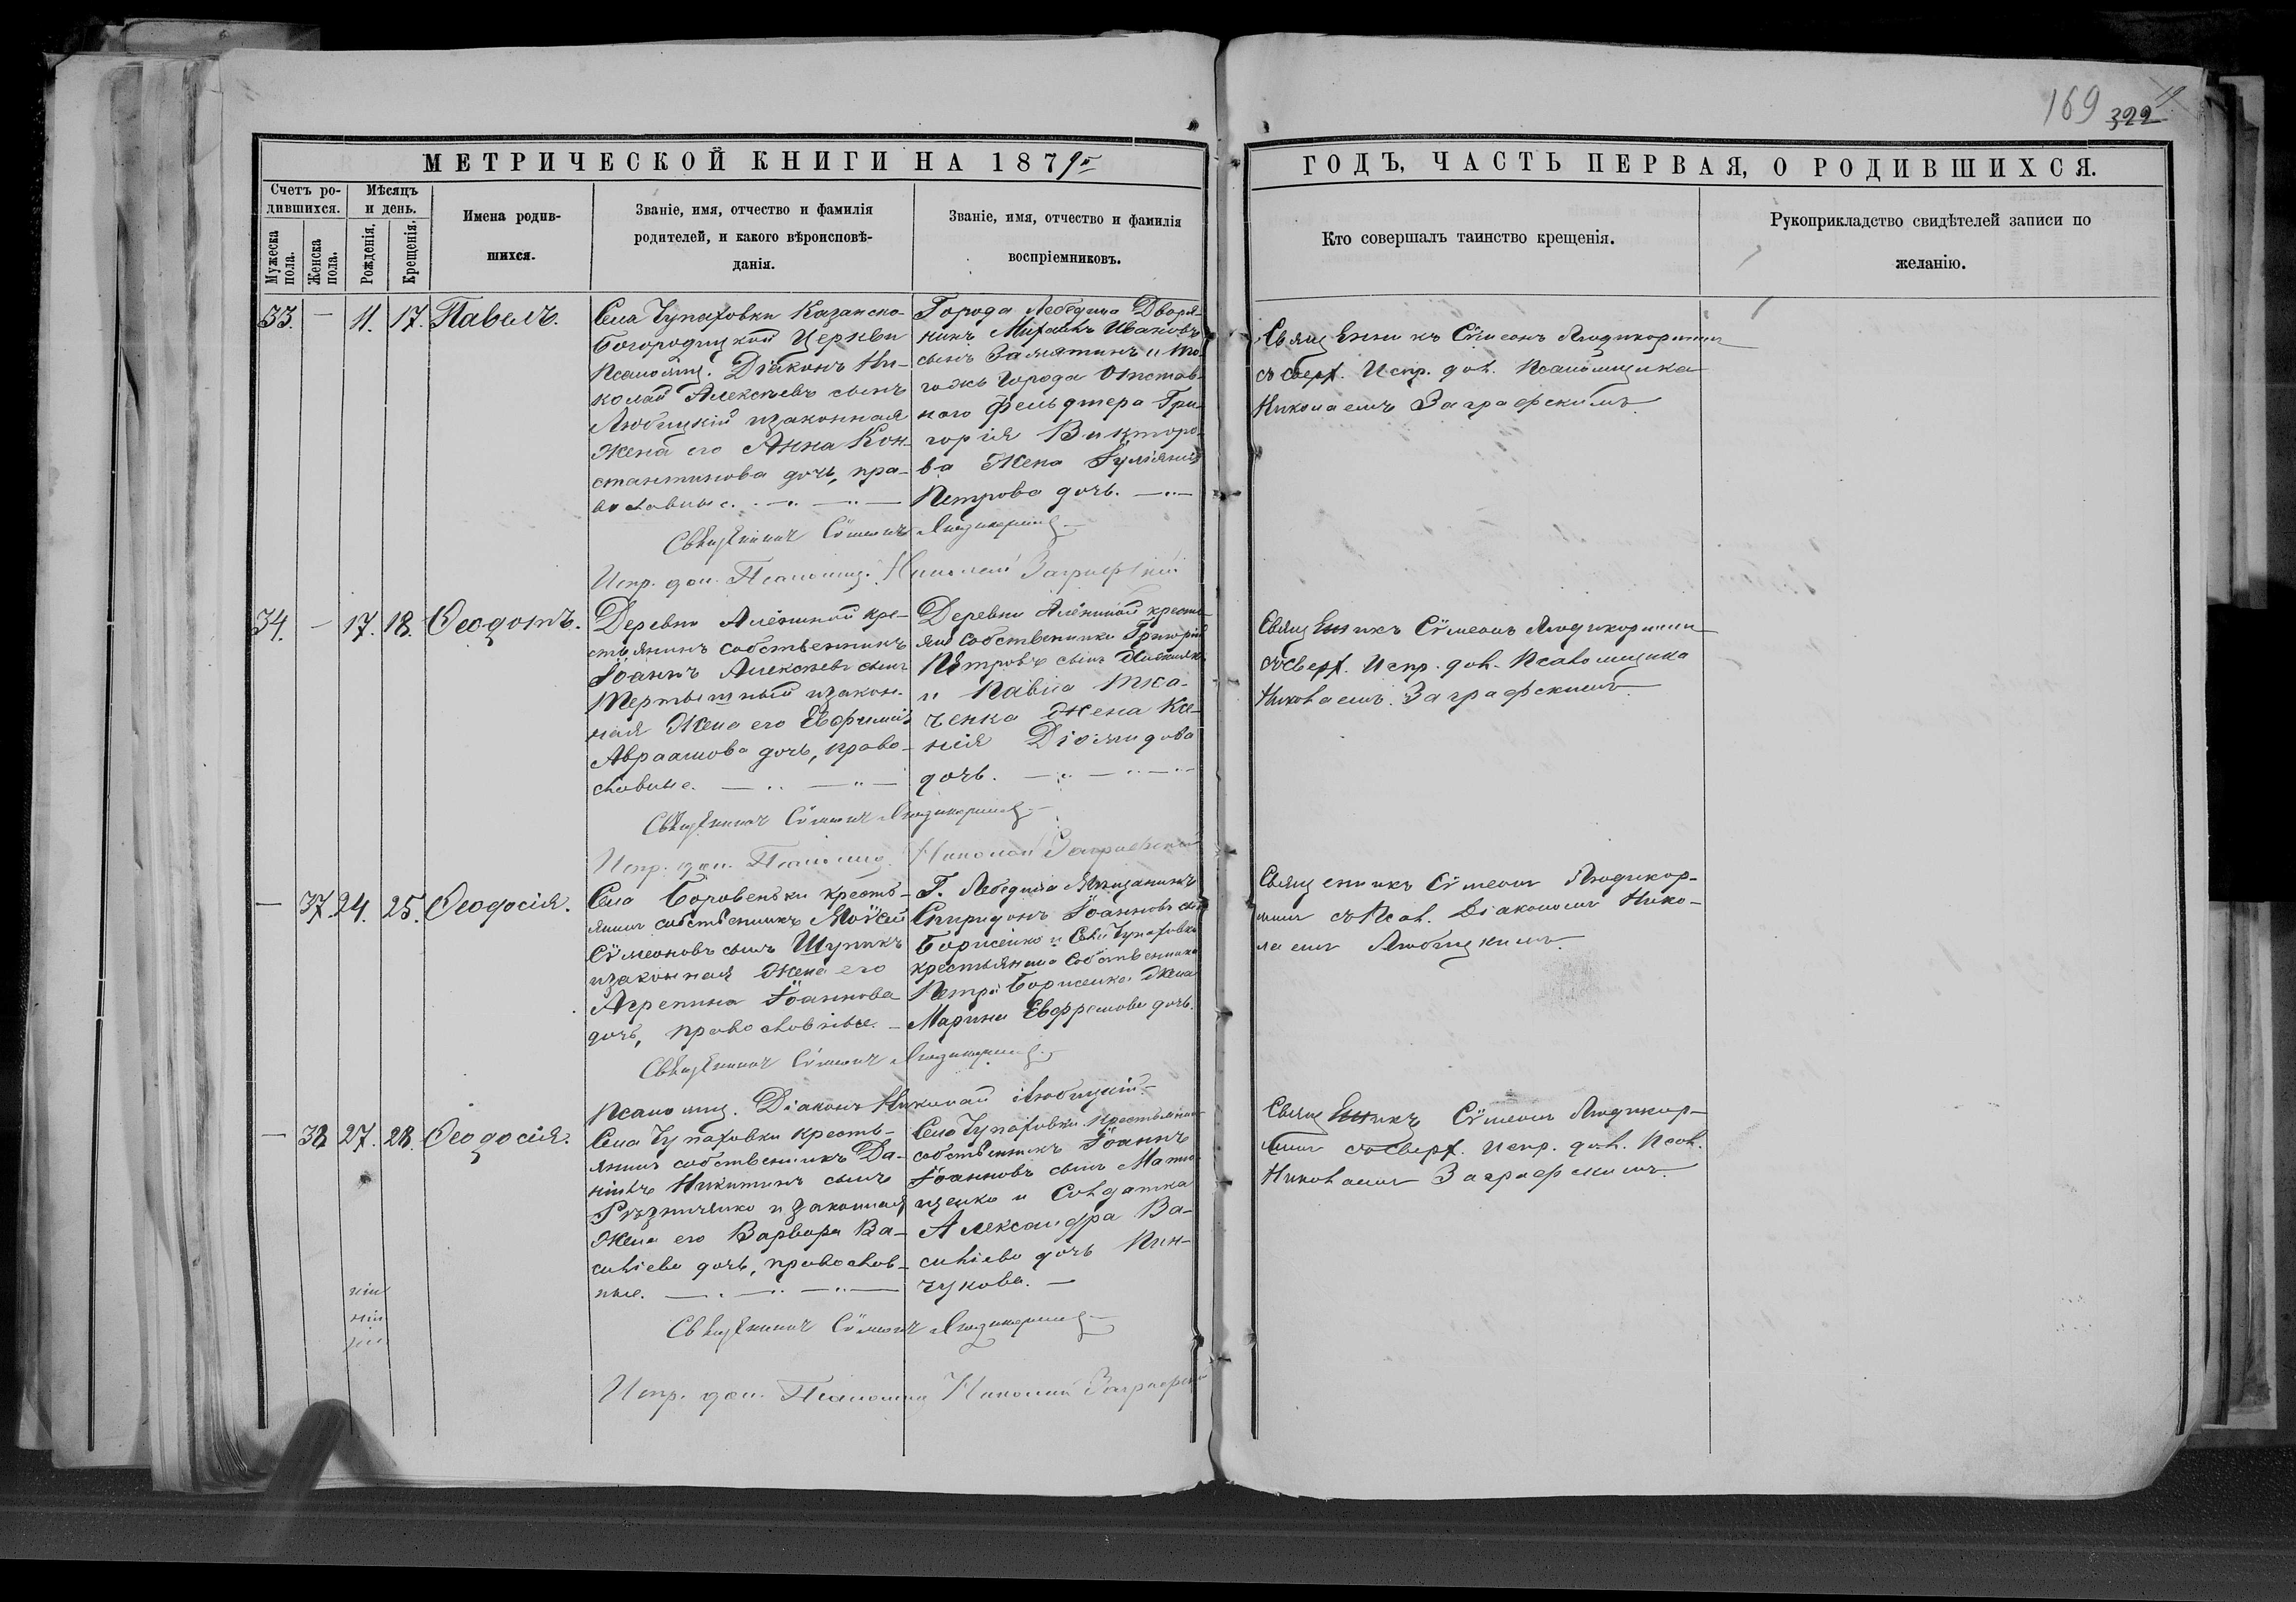 169 322
МЕТРИЧЕСКОЙ КНИГИ НА 1879й
ГОДЪ, ЧАСТЬ ПЕРВАЯ, О РОДИВШИХСЯ.
Счетъ ро-
дившихся.
Мужеска пола.
Женска пола.
Мѣсяцъ
и день.
Рожденія.
Крещенія.
Имена родив-
шихся.
Званіе, имя, отчество и фамилія
родителей, и какого вѣроисповѣ-
данія.
Званіе, имя, отчество и фамилія
воспріемниковъ.
Кто совершалъ таинство крещенія.
Рукоприкладство свидѣтелей записи по
желанію.
33. — 11. 17. Павелъ.
Села Чупаховки Казанско-
Богородицкой Церкви
Псаломщ. Діаконъ Ни-
колай Алексѣевъ сынъ
Любицкій и законная
Жена его Анна Кон-
стантинова дочь, пра-
вославные.
Города Лебедина Дворя-
нинъ Михаилъ Ивановъ
сынъ Замятинъ и то-
гожъ Города Отстав-
ного Фельдшера Гри-
горія Викторо-
ва Жена
Петрова дочь.
Священникъ Сѵмеонъ
съ сверх. Испр. дол. Псаломщика
Николаемъ Заграфскимъ.
Священникъ Сѵмеонъ
Испр. дол. Псаломщ. Николай Заграфскій
34. — 17. 18. Ѳеодотъ.
Деревни Алёшиной кре-
стьянинъ собственникъ
Іоаннъ Алексѣевъ сынъ
и закон-
ная Жена его Евфимія
Авраамова дочь, право-
славные.
Деревни Алёшиной крестья-
нинъ собственникъ Григорій
Петровъ сынъ
и Павла Тка-
ченка Жена Ксе-
нія Діомидова
дочь.
Священникъ Сѵмеонъ
съ сверх. Испр. дол. Псаломщика
Николаемъ Заграфскимъ.
Священникъ Сѵмеонъ
Испр. дол. Псаломщ. Николай Заграфскій
— 37. 24. 25. Ѳеодосія.
Села Боровеньки кресть-
янинъ собственникъ Моѵсей
Сѵмеоновъ сынъ Шупикъ
и законная Жена его
Агрепина Іоаннова
дочь, православные.
Г. Лебедина Мѣщанинъ
Спиридонъ Іоанновъ сынъ
Борисенко и Села Чупаховки
крестьянина Собственника
Петра Борисенка Жена
Марина Евфремова дочь.
Священникъ Сѵмеонъ
съ Псал. Діакономъ Нико-
лаемъ Любицкимъ.
Священникъ Сѵмеонъ
Псаломщ. Діаконъ Николай Любицкій
— 38. 27. 28. Ѳеодосія.
Села Чупаховки кресть-
янинъ собственникъ Да-
ніилъ Никитинъ сынъ
Рѣзниченко и законная
Жена его Варвара Ва-
силіева дочь, православ-
ные.
Села Чупаховки крестьянинъ
собственникъ Іоаннъ
Іоанновъ сынъ
и Солдатка
Александра Ва-
силіева дочь Пин-
чукова.
Священникъ Сѵмеонъ
съ сверх. Испр. дол. Псал.
Николаемъ Заграфскимъ.
Священникъ Сѵмеонъ
Испр. дол. Псаломщ. Николай Заграфскій